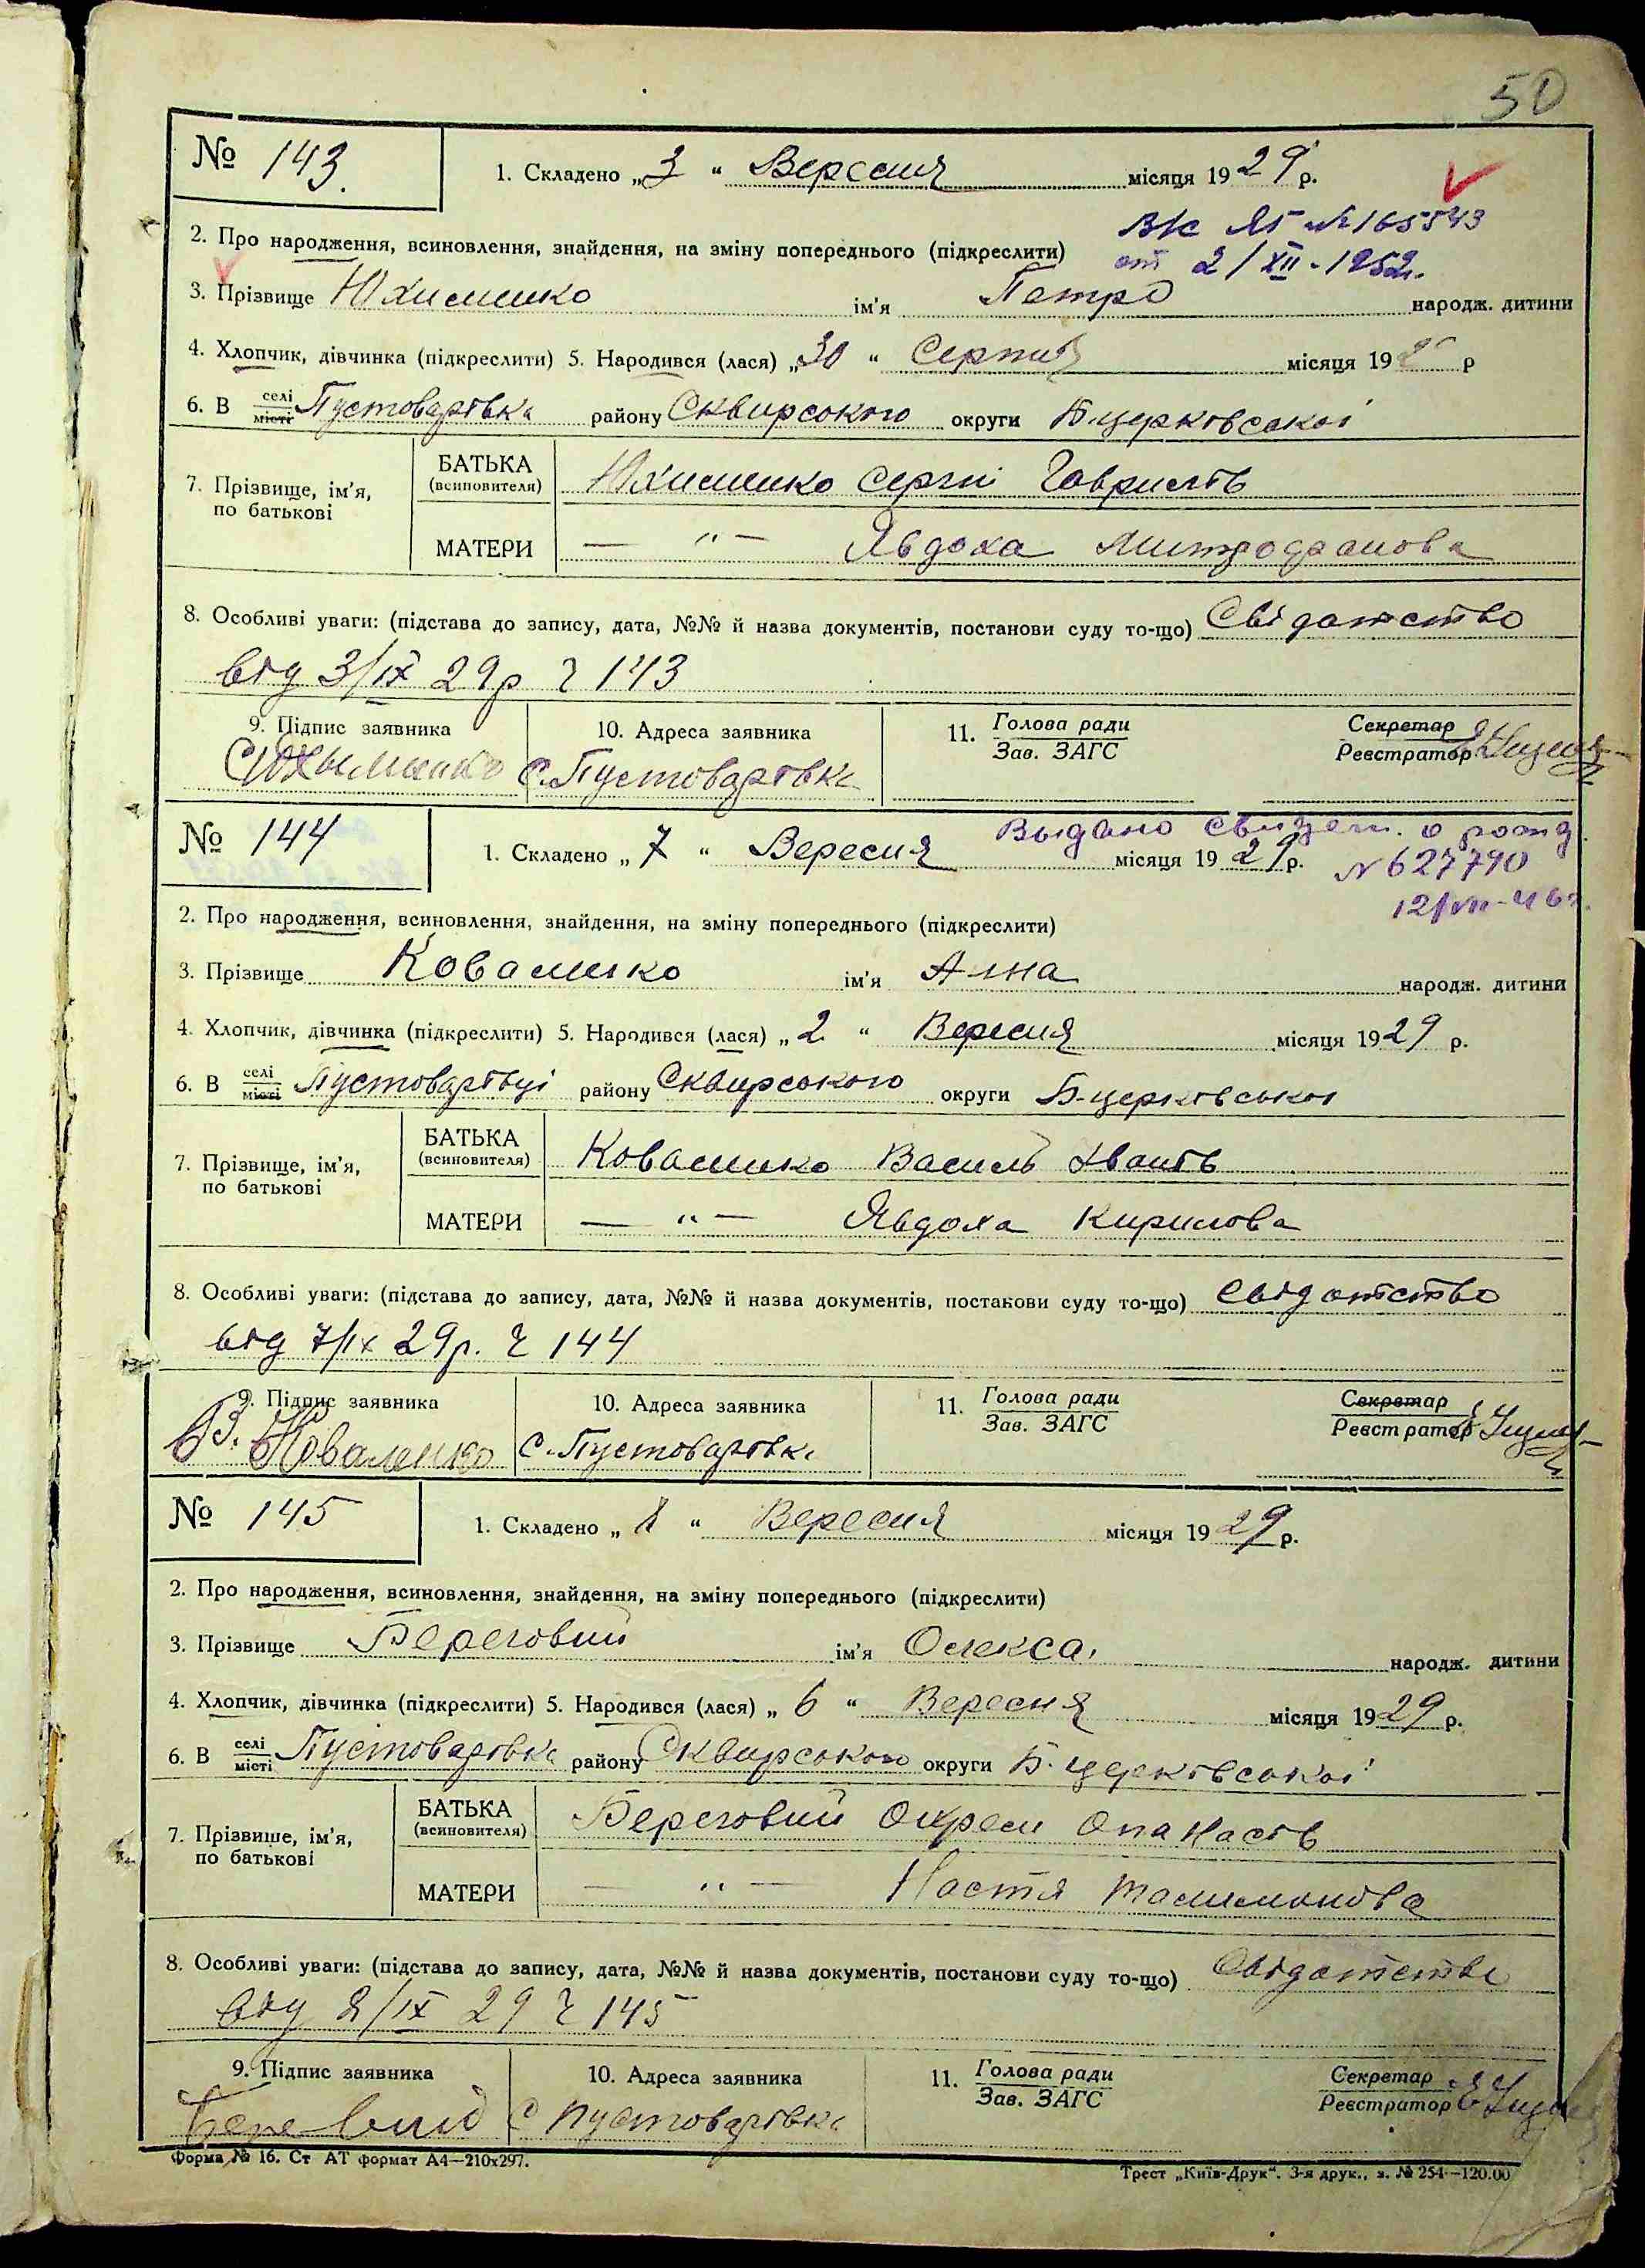 50
№ 143. 1. Складено „3“ Вересня місяця 1929 р.
2. Про народження, всиновлення, знайдення, на зміну попереднього (підкреслити) №165543
от 2/XII-1952г.
3. Прізвище Юхименко ім'я Петро народж. дитини
4. Хлопчик, дівчинка (підкреслити) 5. Народився (лася) „30“ Серпня місяця 192 р
6. В селі місті Пустоварівка району Сквирського округи Б.церківської
7. Прізвище, ім'я, по батькові
БАТЬКА (всиновителя) Юхименко Сергій Гаврилів
МАТЕРИ — „ — Явдоха Митрофанова
8. Особливі уваги: (підстава до запису, дата, №№ й назва документів, постанови суду то-що) Свідотство
від 3/IX 29р ч 143
9. Підпис заявника 10. Адреса заявника 11. Голова ради Зав. ЗАГС Секретар Реєстратор
С Юхыменко С. Пустоварівка
Выдано свидет. о рожд.
№ 144 1. Складено „7“ Вересня місяця 1929 р. N 627790
12/VII-46г.
2. Про народження, всиновлення, знайдення, на зміну попереднього (підкреслити)
3. Прізвище Коваленко ім'я Анна народж. дитини
4. Хлопчик, дівчинка (підкреслити) 5. Народився (лася) „2“ Вересня місяця 1929 р.
6. В селі місті Пустоварівці району Сквирського округи Б-церківської
7. Прізвище, ім'я, по батькові
БАТЬКА (всиновителя) Коваленко Василь Іванів
МАТЕРИ — „ — Явдоха Кирилова
8. Особливі уваги: (підстава до запису, дата, №№ й назва документів, постанови суду то-що) Свідотство
від 7/IX 29р. ч 144
9. Підпис заявника 10. Адреса заявника 11. Голова ради Зав. ЗАГС Секретар Реєстратор
В. Коваленко С. Пустоварівка
№ 145 1. Складено „8“ Вересня місяця 1929 р.
2. Про народження, всиновлення, знайдення, на зміну попереднього (підкреслити)
3. Прізвище Береговий ім'я Олекса народж. дитини
4. Хлопчик, дівчинка (підкреслити) 5. Народився (лася) „6“ Вересня місяця 1929 р.
6. В селі місті Пустоварівка району Сквирського округи Б. церківської
7. Прізвище, ім'я, по батькові
БАТЬКА (всиновителя) Береговий Охрем Опанасів
МАТЕРИ — „ — Настя
8. Особливі уваги: (підстава до запису, дата, №№ й назва документів, постанови суду то-що) Свідотство
від 8/IX 29 ч 145
9. Підпис заявника 10. Адреса заявника 11. Голова ради Зав. ЗАГС Секретар Реєстратор
С Пустоварівка
Форма № 16. Ст АТ формат А4—210х297.
Трест „Київ-Друк“. 3-я друк., з. № 254—120.00